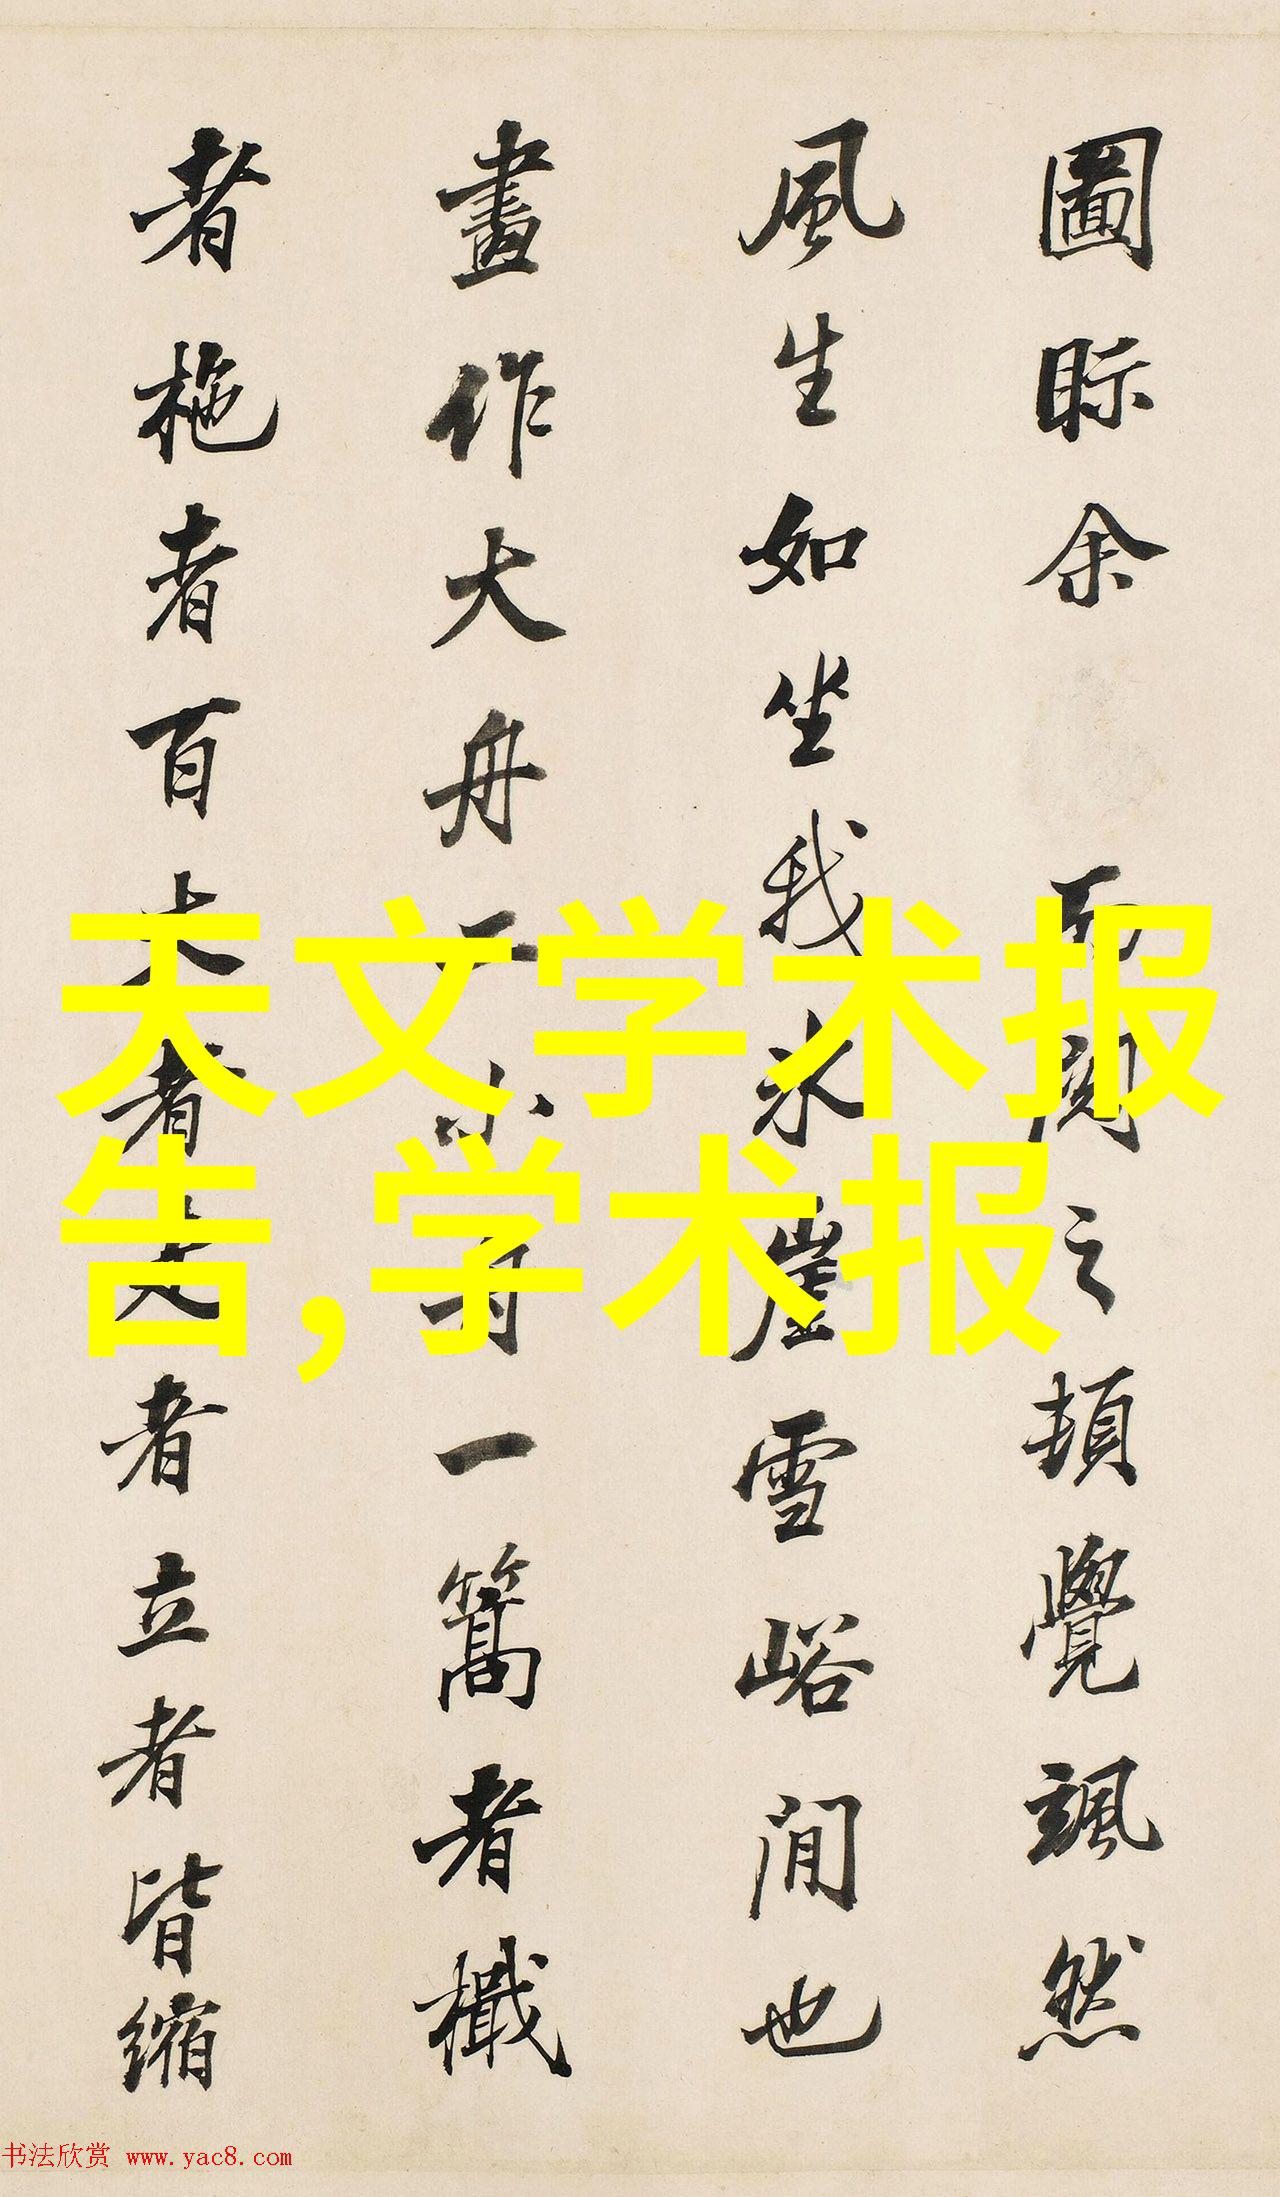 圖眎余
而閱之頓覺颯然
風生如坐我冰崖雪峪間也
畫作大舟二小舟一篙者檝
者柂者百丈者丈者立者皆縮
天文学术报
告,学术报
书法欣赏 www.yac8.com